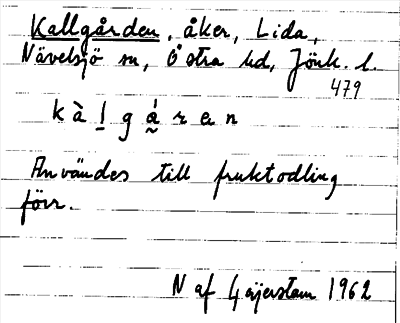 Kallgården, åker, Lida,
Nävelsjö sn, Östra hd, Jönk. l.
479
k à l g á r e n
Användes till fruktodling
förr.
N af Geijerstam 1962